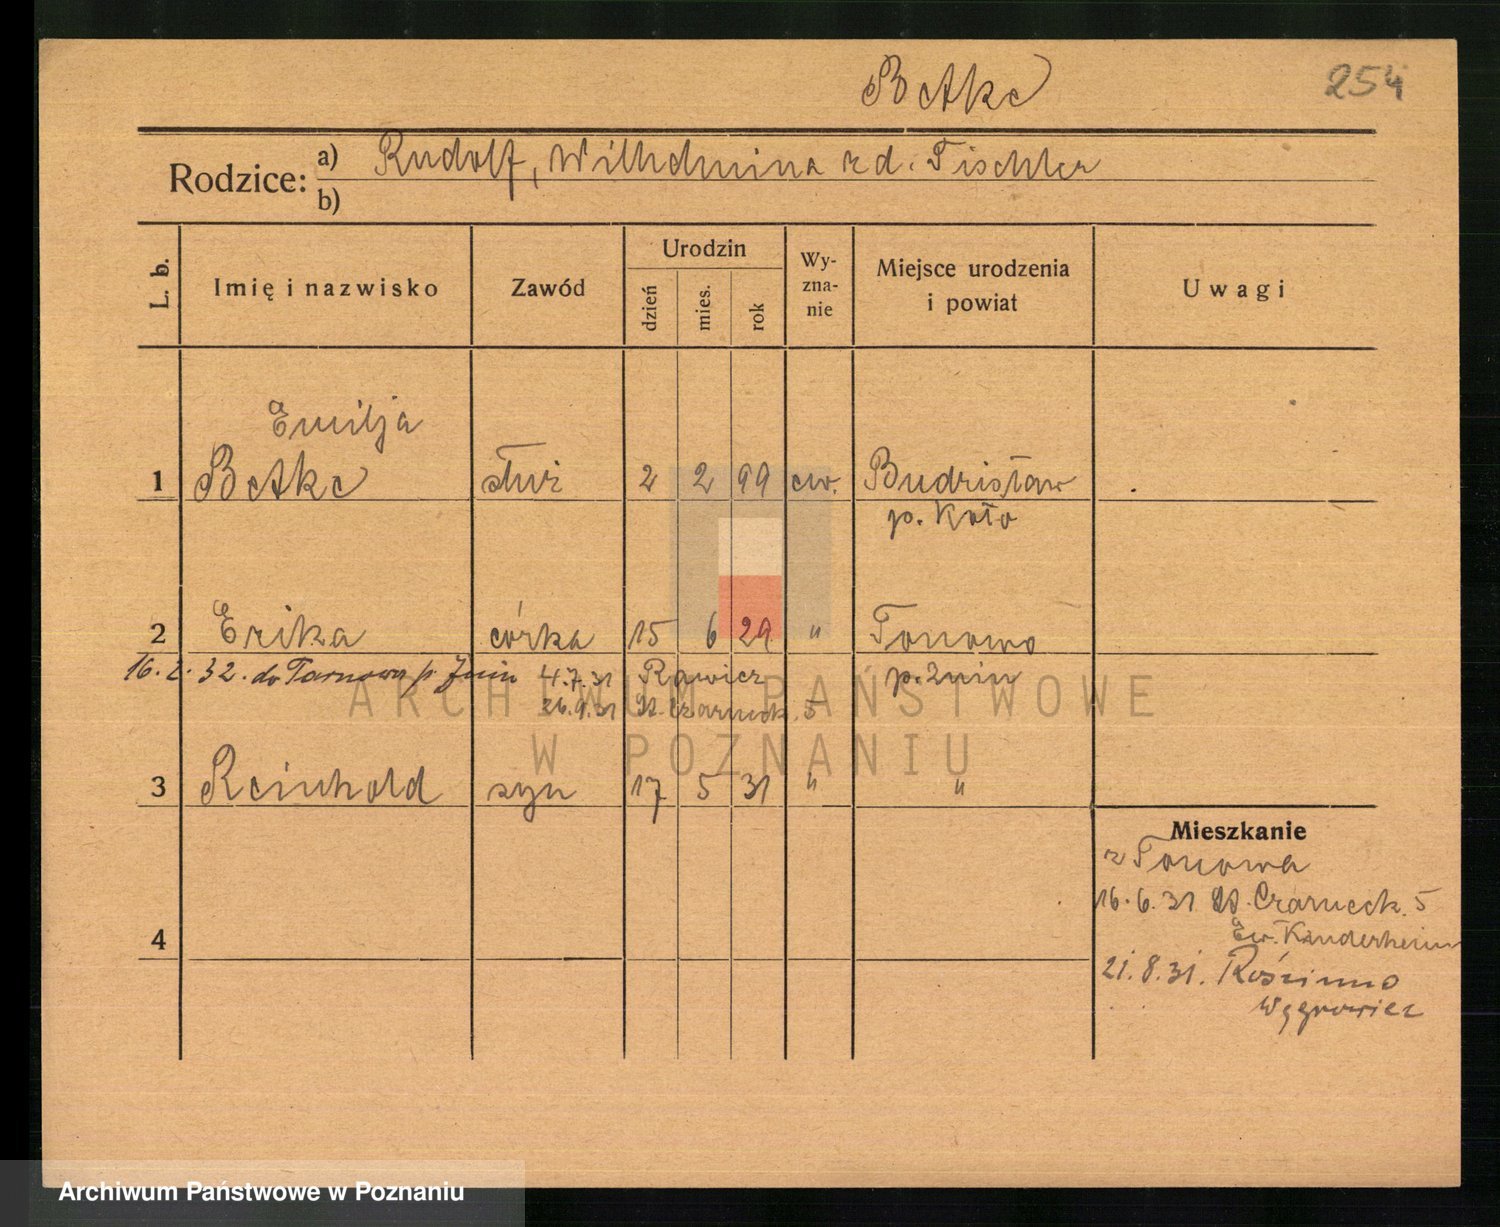 Betke
254
Rodzice: a) Rudolf, Wilhelmina z d. Tischler
b)
L. b.
Imię i nazwisko
Zawód
Urodzin
dzień
mies.
rok
Wy-
zna-
nie
Miejsce urodzenia
i powiat
Uwagi
Emilja
1 Betke służ 2 2 99 ew. Budzisław
p. Koło
2 Erika córka 15 6 29 " Tonowo
16. 2. 32. do Tarnowa p. Żnin 4.7.31 Rawicz p. Żnin
26.9.31 St. Czarneck. 5
3 Reinhold syn 17 5 31 " "
Mieszkanie
z Tonowa
16. 6. 31 St. Czarneck. 5
Ew. Kinderheim
21. 8. 31. Rościnno
Wągrowiec
4
ARCHIWUM PAŃSTWOWE
W POZNANIU
Archiwum Państwowe w Poznaniu